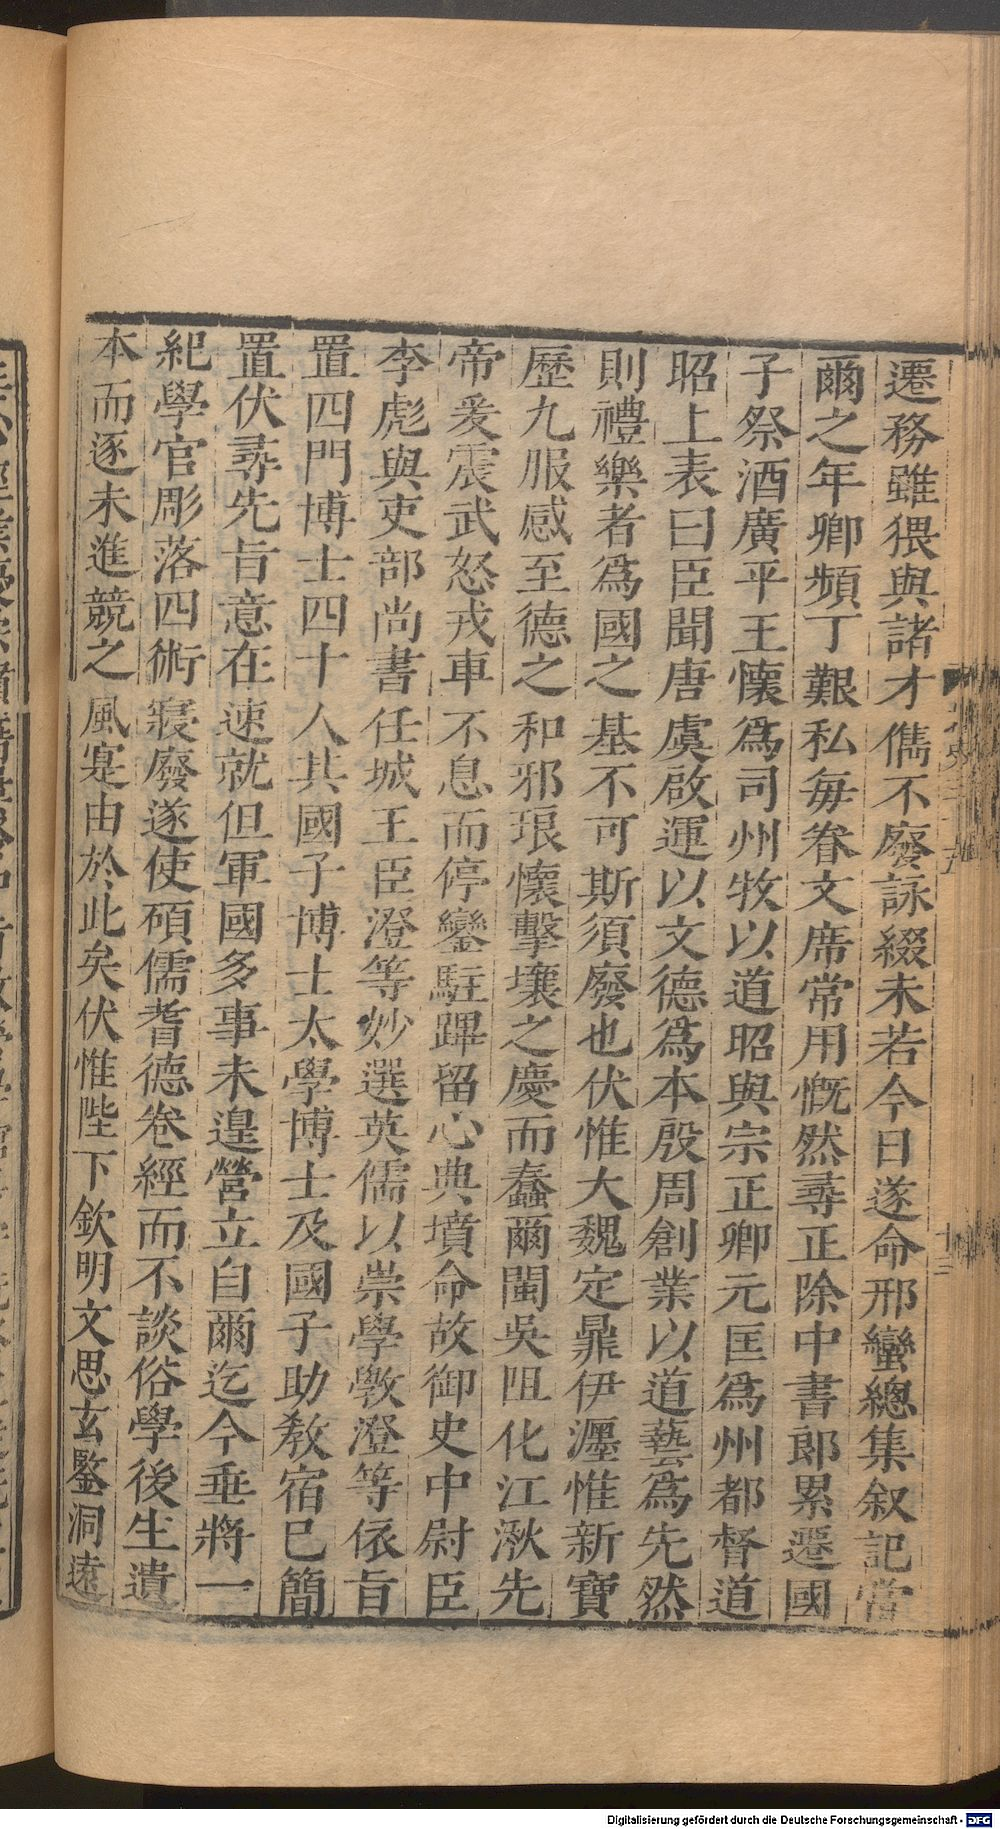 遷務雖猥與諸才儁不廢詠綴未若今日遂命邢巒總集叙記當
爾之年卿頻丁艱私每眷文席常用慨然尋正除中書郎累遷國
子祭酒廣平王懷爲司州牧以道昭與宗正卿元匡爲州都督道
昭上表曰臣聞唐虞啟運以文德爲本殷周創業以道藝爲先然
則禮樂者爲國之基不可斯須廢也伏惟大魏定鼎伊瀍惟新寶
歷九服感至德之和邪琅懷擊壤之慶而蠢爾閩吳阻化江湫先
帝爰震武怒戎車不息而停鑾駐蹕留心典墳命故御史中尉臣
李彪與吏部尚書任城王臣澄等妙選英儒以崇學斆澄等依旨
置四門博士四十人共國子博士太學博士及國子助教宿已簡
置伏尋先旨意在速就但軍國多事未遑營立自爾迄今垂將一
紀學官彫落四術寢廢遂使碩儒耆德卷經而不談俗學後生遺
本而逐末進競之風寔由於此矣伏惟陛下欽明文思玄鑒洞遠
Digitalisierung gefördert durch die Deutsche Forschungsgemeinschaft - DFG